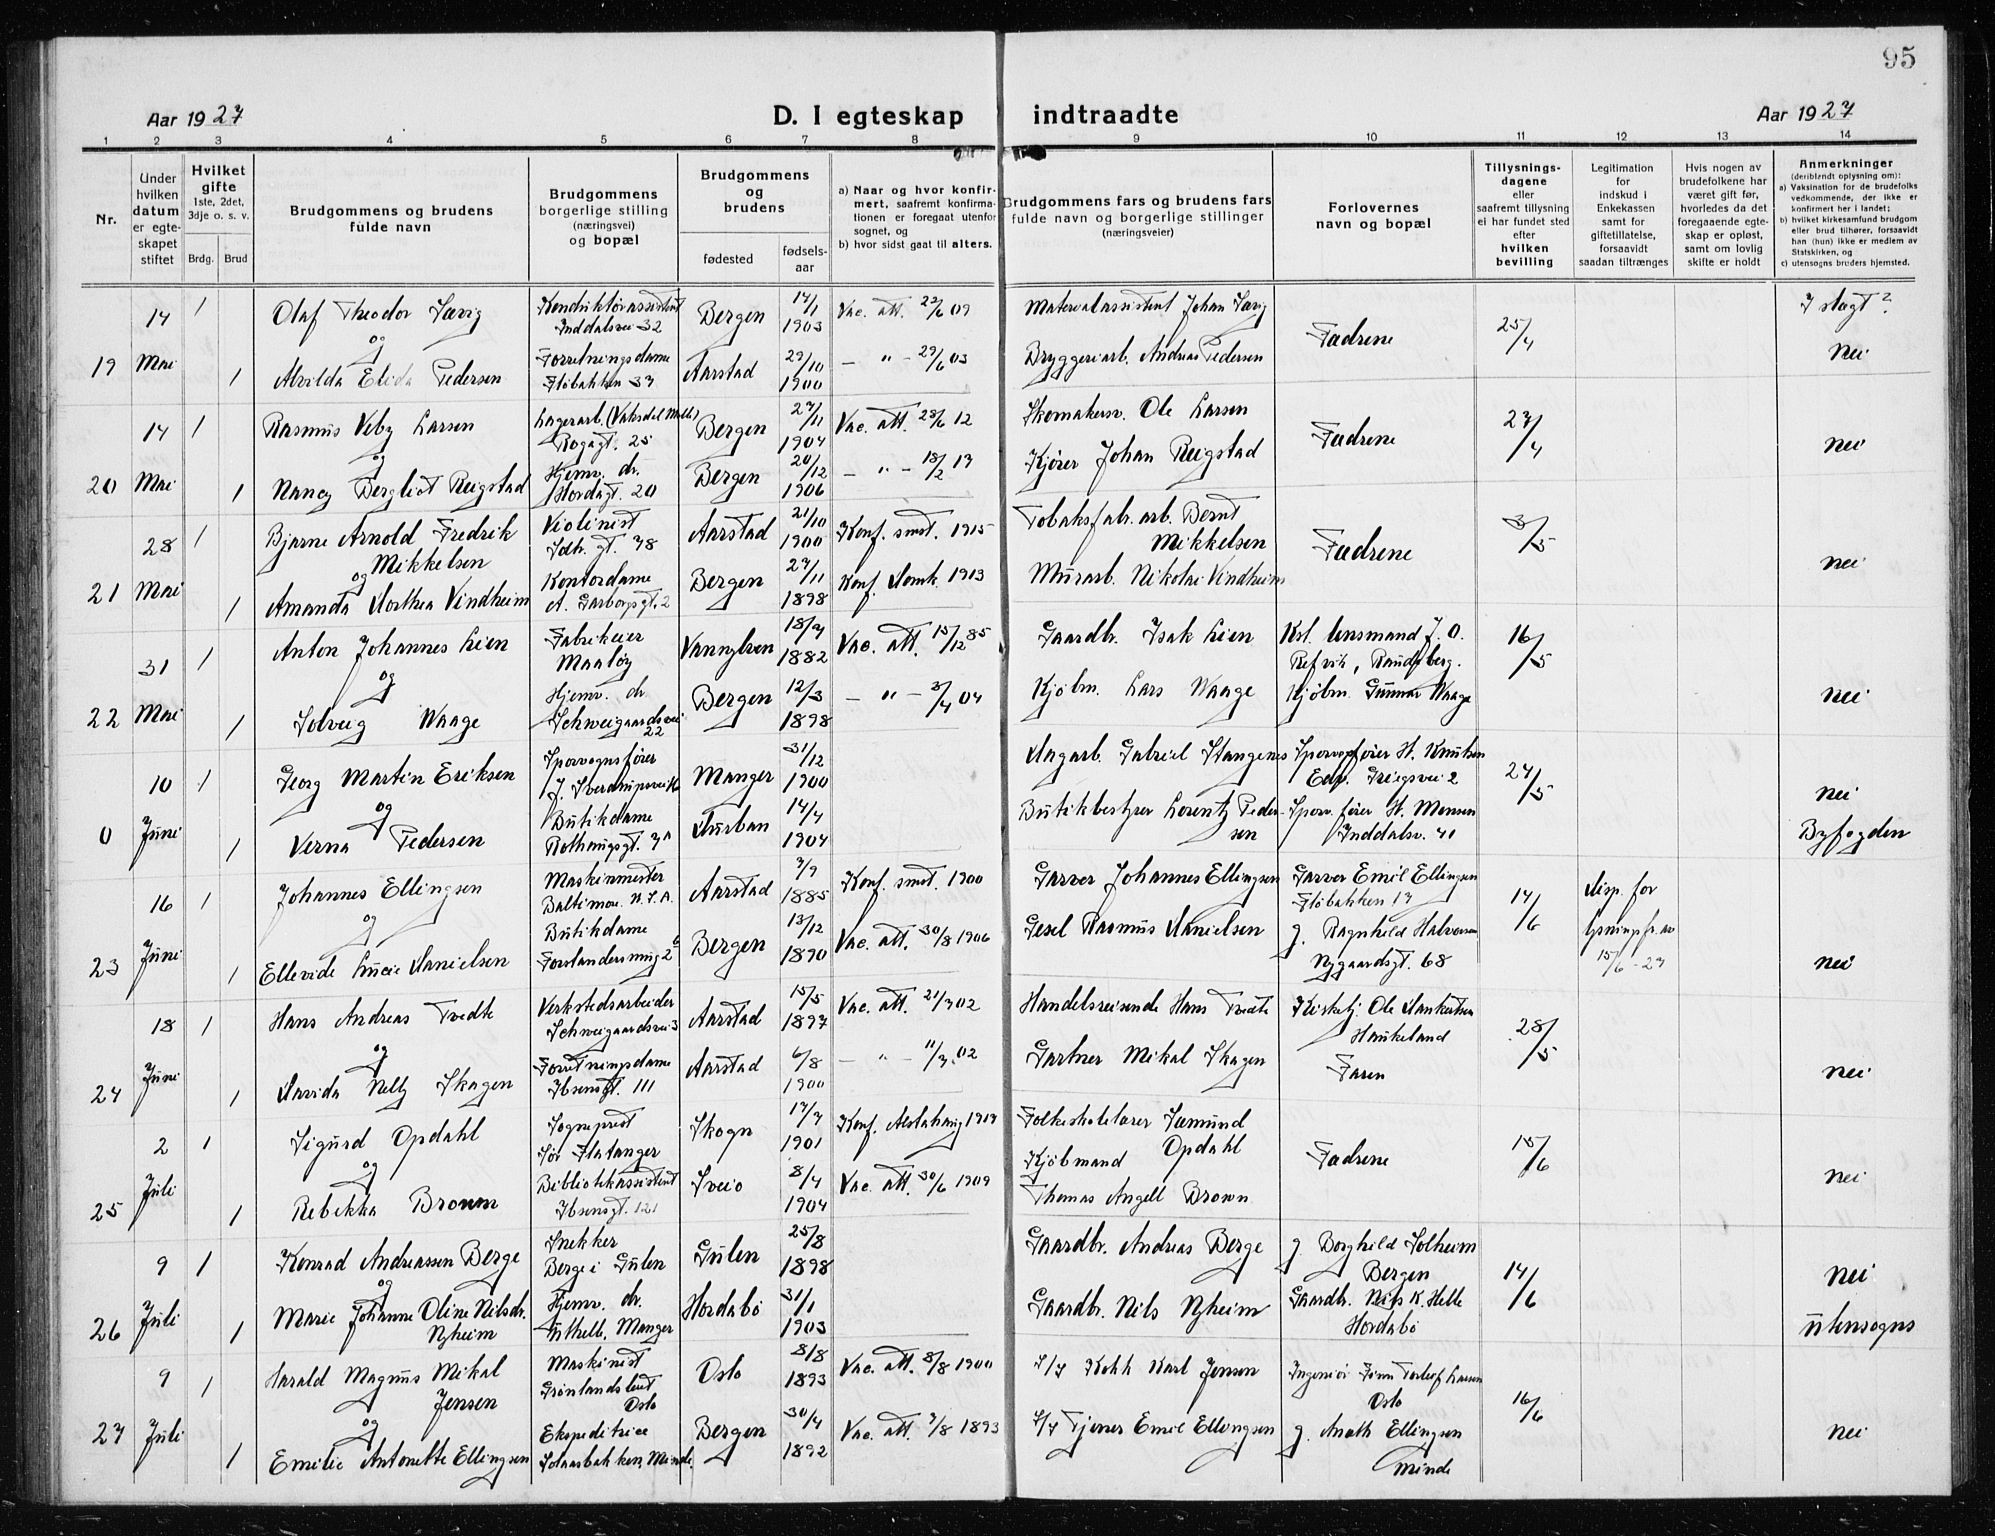 95
Aar 1927
D. I egteskap indtraadte
Aar 1927
1 2 3 4 5 6 7 8 9 10 11 12 13 14
Nr.
Under hvilken datum er egteskapet stiftet
Hvilket gifte 1ste, 2det, 3dje o. s. v.
Brdg. Brud
Brudgommens og brudens fulde navn
Brudgommens borgerlige stilling (næringsvei) og bopæl
Brudgommens og brudens
fødested
fødselsaar
a) Naar og hvor konfirmert, saafremt konfirmationen er foregaat utenfor sognet, og
b) hvor sidst gaat til alters.
Brudgommens fars og brudens fars fulde navn og borgerlige stillinger (næringsveier)
Forlovernes navn og bopæl
Tillysningsdagene eller saafremt tillysning ei har fundet sted efter hvilken bevilling
Legitimation for indskud i Enkekassen samt for giftetillatelse, forsaavidt saadan tiltrænges
Hvis nogen av brudefolkene har været gift før, hvorledes da det foregaaende egteskap er opløst, samt om lovlig skifte er holdt
Anmerkninger (deriblendt oplysning om):
a) Vaksination for de brudefolks vedkommende, der ikke er konfirmert her i landet;
b) hvilket kirkesamfund brudgom eller brud tilhører, forsaavidt han (hun) ikke er medlem av Statskirken, og
c) utensogns bruders hjemsted.
14 1 Olaf Theodor Særvig Konduktørassistent Inddalsvei 32 Bergen 14/1 1903 Vac. att. 22/6 09 Materialassistent Johan Særvig Fadrene 25/4 I slegt?
19 Mai og
1 Alvilda Elida Pedersen Forretningsdame Fløbakken 37 Aarstad 29/10 1900 — " — 29/6 03 Bryggeriarb. Andreas Pedersen nei
14 1 Rasmus Veby Larsen Lagerarb. (Vaksdal Mølle) Bergen 27/11 1904 Vac. att. 28/6 12 Skomakersv. Ole Larsen Fadrene 27/4 nei
20 Mai og
1 Nancy Bergliot Reigstad Hjemv. dr. Hordagt. 20 Bergen 20/12 1906 — " — 18/2 17 Kjører Johan Reigstad
28 1 Bjarne Arnold Fredrik Mikkelsen Violinist Aarstad 21/10 1900 Konf. smst. 1915 Tobaksfabr. arb. Bernt Mikkelsen Fadrene 3/5 nei
21 Mai og
1 Amanda Dorthea Vindheim Kontordame A. Garborgsgt. 2 Bergen 27/11 1898 Konf. Domk. 1913 Murarb. Nikolai Vindheim
31 1 Anton Johannes Lien Fabrikeier Maaløy Vannylven 18/7 1882 Vac. att. 15/12 85 Gaardbr. Isak Lien Kst. lensmand J. O. Refvik, Raudeberg. 16/5
22 Mai og
1 Solveig Waage Hjemv. dr. Schweigaardsvei 22 Bergen 12/3 1898 — " — 3/4 04 Kjøbm. Lars Waage Kjøbm. Gunnar Waage nei
10 1 Georg Martin Eriksen Sporvognsfører J. Sverdrupsvei Manger 31/12 1900 Dagarb. Gabriel Stangenes Sporvognfører H. Knutsen Edv. Griegsvei 2 24/5 nei
0 Juni og
1 Verna Pedersen Butikdame Durban 14/4 1904 Butikbestyrer Lorentz Pedersen Sporv. fører H. Monsen Inddalsv. 41 Byfogden
16 1 Johannes Ellingsen Maskinmester Baltimore U.S.A. Aarstad 7/9 1885 Konf. smst. 1900 Garver Johannes Ellingsen Garver Emil Ellingsen Fløbakken 17 14/6 Disp. for lysningsfr. av 15/6-27
23 Juni og
1 Ellevide Lucie Danielsen Butikdame Forstandersmug 2 Bergen 13/12 1890 Vac. att. 30/8 1906 Gesel Rasmus Danielsen g. Ragnhild Halvorsen Nygaardsgt. 68 nei
18 1 Hans Andreas Tvedte Verkstedsarbeider Schweigaardsvei 3 Aarstad 15/5 1897 Vac. att. 21/7 02 Handelsreisende Hans Tvedte Kirketj. Ole Dankertsen Haukeland 28/5
24 Juni og
1 Davida Nelly Skagen Forretningsdame Ibsensgt. 111 Aarstad 6/8 1900 — " — 11/7 02 Gartner Mikal Skagen Faren nei
2 1 Sigurd Opdahl Sogneprest Sør Flatanger Skogn 17/7 1901 Konf. Alstahaug 1917 Folkeskolelærer Sæmund Opdahl Fadrene 15/6 nei
25 Juli og
1 Rebekka Brown Bibliotekassistent Ibsensgt. 121 Sveio 8/4 1904 Vac. att. 30/6 1909 Kjøbmand Thomas Angell Brown
9 1 Konrad Andreassen Berge Snekker Berge i Gulen Gulen 25/8 1898 Gaardbr. Andreas Berge g. Borghild Solheim Bergen 14/6 nei
26 Juli og
1 Marie Johanne Oline Nilsdr. Nyheim Hjemv. dr. Uthelle, Manger Hordabø 31/1 1903 Gaardbr. Nils Nyheim Gaardbr. Nils K. Helle Hordabø utensogns
9 1 Harald Magnus Mikal Jensen Maskinist Grønlandsleit Oslo Oslo 8/8 1893 Vac. att. 8/8 1900 Kokk Karl Jensen Ingeniør Finn Torleif Larsen Oslo 16/6
27 Juli og
1 Emilie Antonette Ellingsen Ekspeditrice Solaasbakken, Minde. Bergen 30/4 1892 Vac. att. 7/8 1893 Tjener Emil Ellingsen g. Anath Ellingsen Minde nei